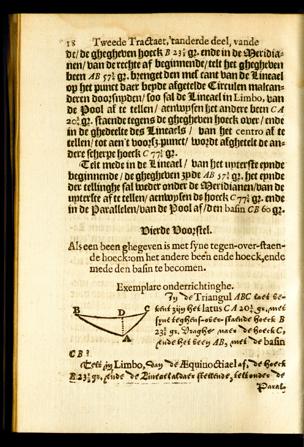 18 Tweede Tractaet, 'tanderde deel, vande
de/ de ghegheven hoeck B 23½ gr. ende in de Meridia-
nen/ van de rechte af beginnende/telt het ghegheven
been AB 57½ gr. brenget den mel cant van de Lineael
op het punt daer beyde afgetelde Circulen malcan-
deren doorsnyden/ soo sal de Lineael in Limbo, van
de Pool af te tellen/ aenwysen het andere been CA
20¾ gr. staende tegens de ghegheven hoeck over/ ende
in de ghedeelte des Lineaels / van het centro af te
tellen/ tot aen't voorsz. punt/ wordt afghetelt de an-
dere scherpe hoeck C 77½ gr.
Telt mede in de Lineael / van het uyterste eynde
beginnende / de ghegheven zyde AB 57½ gr. het eynde
der tellinghe sal weder onder de Meridianen/van de
uyterste af te tellen/ aenwysen de hoeck C 77½ gr. ende
in de Parallelen/van de Pool af/den basin CB 60 gr.
Vierde Voorstel.
Als een been ghegeven is met syne tegen-over-staen-
de hoeck: om het andere been ende hoeck, ende
mede den basin te becomen.
Exemplare onderrichtinghe.
In de Triangul ABC laet be-
kent zijn het latus CA 20¾ gr. met
syne teghens-over-staende hoeck B
23½ gr. Vraghe naer de hoeck C,
ende het been AB, met de basin
CB?
B D C
A
Telt in Limbo, van de Æquinoctiael af, de hoeck
B 23½ gr. ende de Lineael aldaer stellende, telt onder de
Paral-